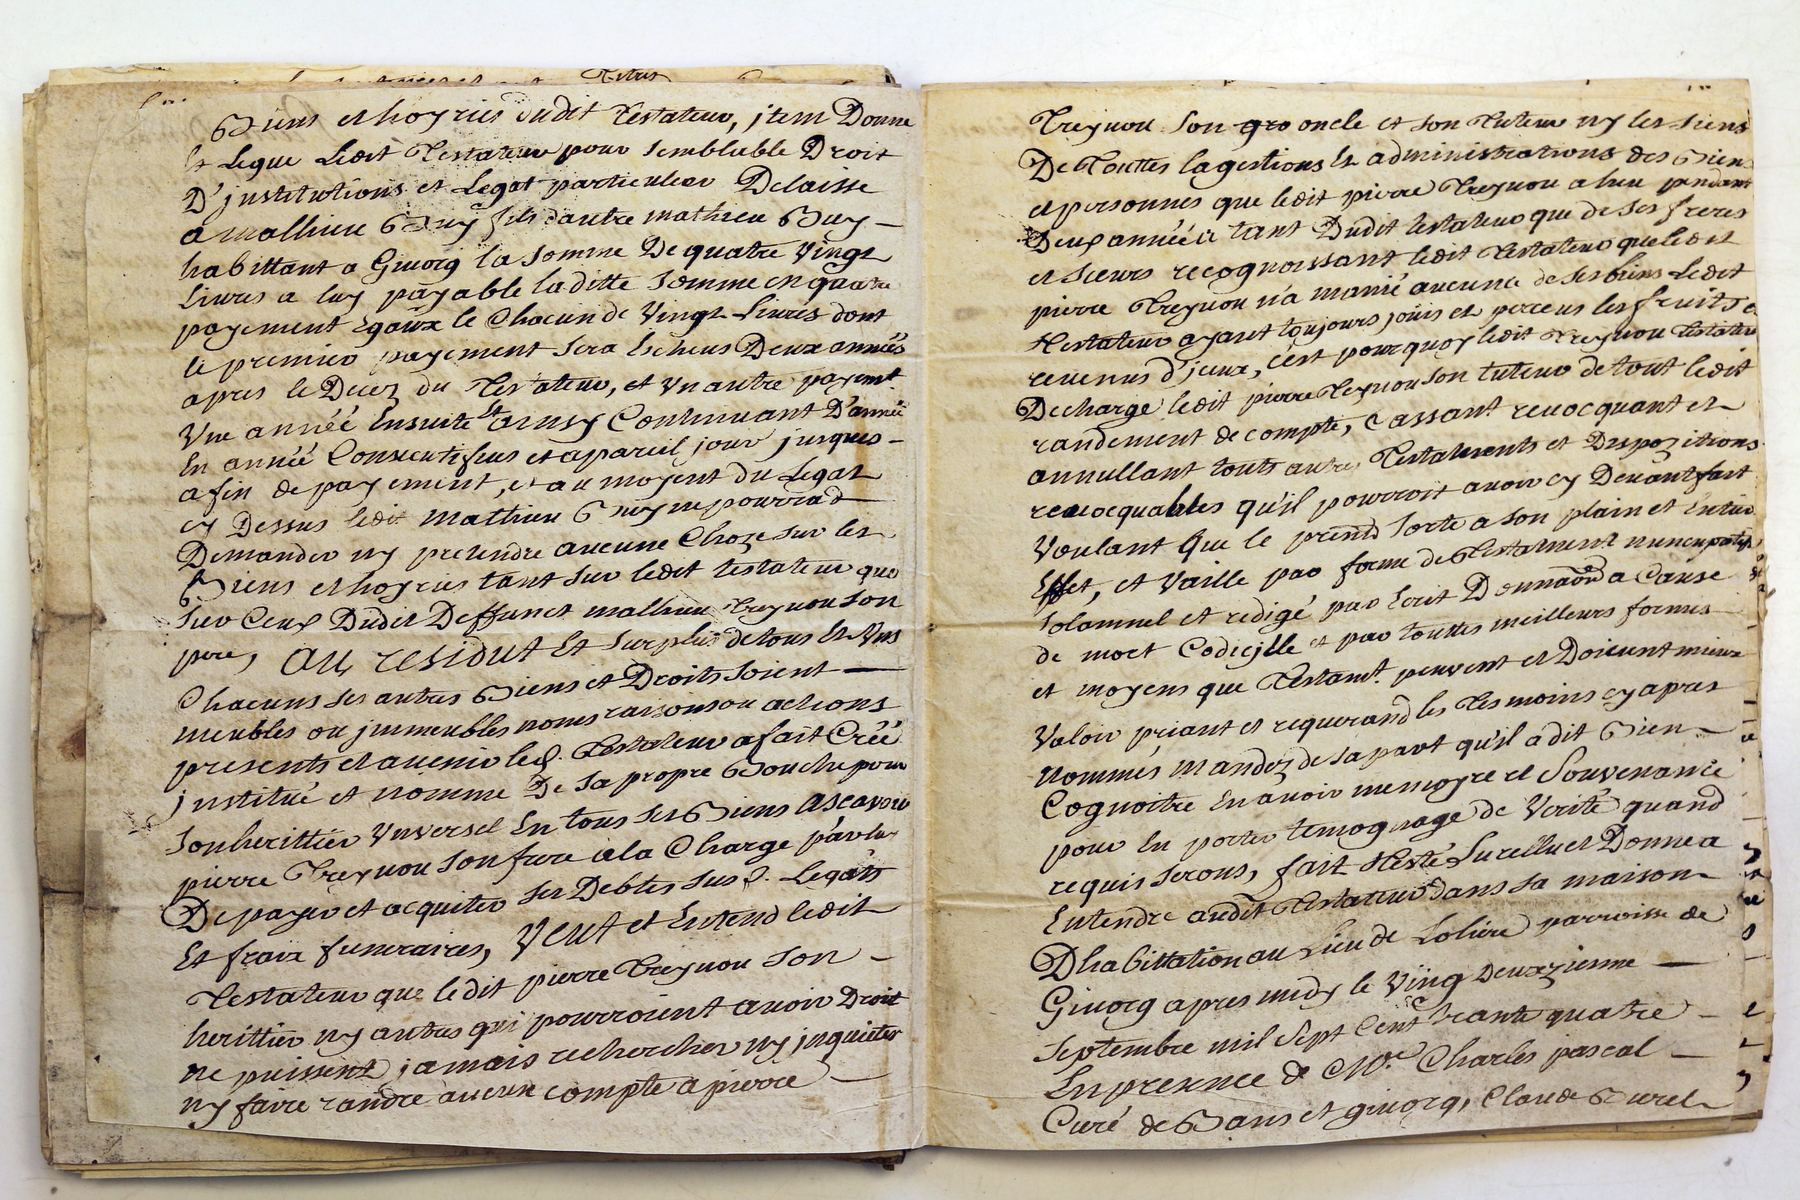 Biens et hoyries dudit Testateur, jtem Donne
et Legue Ledit Testateur pour semblable Droit
D'jnstitutions et Legat particulier Delaisse
a mathieu Buy fils d'autre mathieu Buy -
habittant a Givorg la somme De quatre Vingt
Livres a luy payable laditte somme en quatre
payement Egaux le Chacun de Vingt Livres dont
le premier payement sera Echeus Deux années
apres le Decez du Testateur, et un autre payemt
Une année Ensuitte et ainsy Continuant D'année
En année Consecutifues et a pareil jour jusques -
a fin de payement, et au moyent du Legat
cy Dessus ledit mathieu Buy ne pourrad
Demander ny pretendre aucune Choze sur les
Biens et hoyries tant sur ledit testateur que
sur Ceux Dudit Deffunct mathieu Treynou son
pere, au residut Et surplus de tous Et Uns
Chacuns ses autres Biens et Droits soient -
meubles ou jmmeubles noms raisons ou actions
presents et avenir led. Testateur a fait Créé
jnstitué et nommé De sa propre Bouche pour
son herittier Universel En tous ses Biens ascavoir
pierre Treynou son frere a la Charge par luy
De payer et acquiter ses Debtes susd. Legats
Et fraix funeraires, Veut et Entend ledit
Testateur que ledit pierre Treynou son -
herittier ny autres qui pourroient avoir Droit
ne puissent jamais rechercher ny jnquieter
ny faire randre aucun compte a pierre -
Treynou son gro oncle et son Tuteur ny les siens
De touttes la gestions Et administrations des Biens
et personnes que ledit pierre Treynou a heu pendant
Deux années tant Dudit testateur que de ses freres
et sœurs recognoissant ledit Testateur que ledit
pierre Treynou n'a manié aucune de ses biens Ledit
Testateur ayant toujours jouis et perceus les fruits et
revenus d'jeux, c'est pourquoy ledit Treynou Testateur
Decharge ledit pierre Treynou son tuteur de tout ledit
randement de compte, Cassant revocquant et
annullant touts autres Testaments et Dispozitions
revocquables qu'il pourroit avoir cy Devant fait
Voulant que le presend sorte a son plain et Entier
Effet, et Vaille par forme de Testament nuncupatif
solamnel et redigé par Ecrit Donnaõn a Cause
de mort Codicjlle et par touttes meilleurs formes
et moyens que Testamt. peuvent et Doivent mieux
Valoir priant et requerand les Tesmoins cy apres
nommés mandez de sa part qu'il a dit Bien -
Cognoitre En avoir memoyre et Souvenance
pour En porter temognage de Verité quand
requis serons, fait Testé Lu relleu et Donne a
Entendre audit Testateur dans sa maison
D'habittation au Lieu de Loliere parroisse de
Givorg apres midy le Ving Deuxzienme -
septembre mil sept Cent trante quatre -
En presence de Mre Charles pascal -
Curé de Bans et givorg, Claude Burel